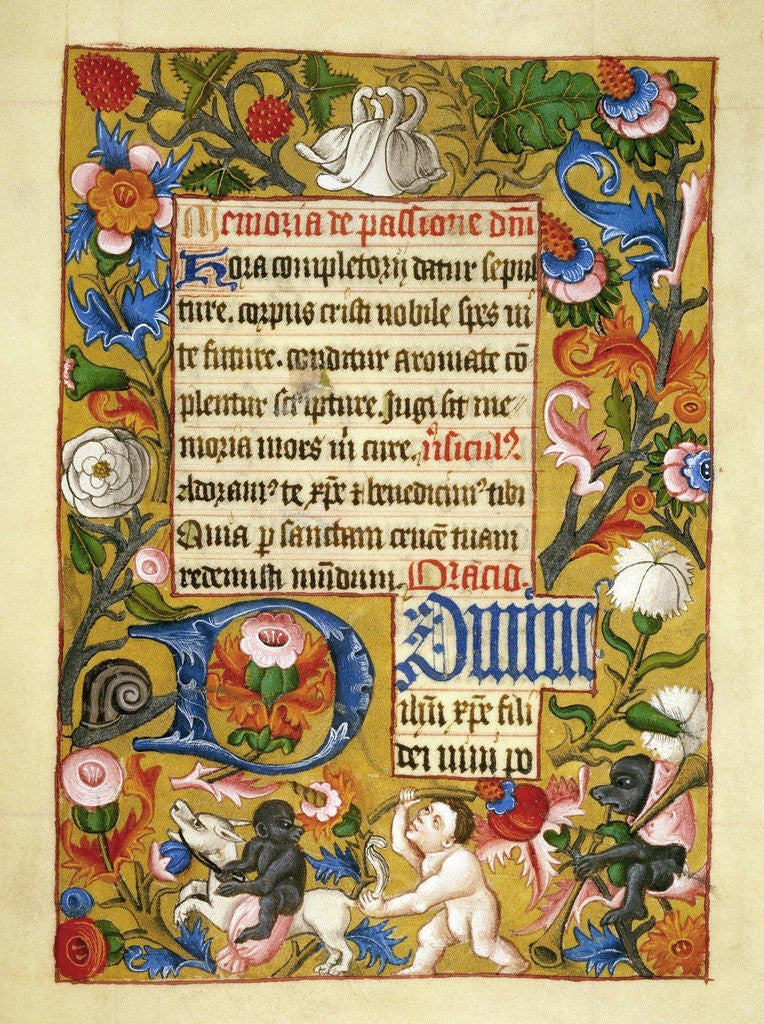 Memoria de passione dni
Hora completorij datur sepul
ture. corpus cristi nobile spes vi
te future. conditur aromate cō
plentur scripture. Jugi sit me
moria mors in cure. v̓sicul᷒
Adoram᷒ te xp̄e ⁊ benedicim᷒ tibi
Quia p̱ sanctam crucē tuam
redemisti mūdum. Oracio.
Domine
ihū xp̄e fili
dei viui po